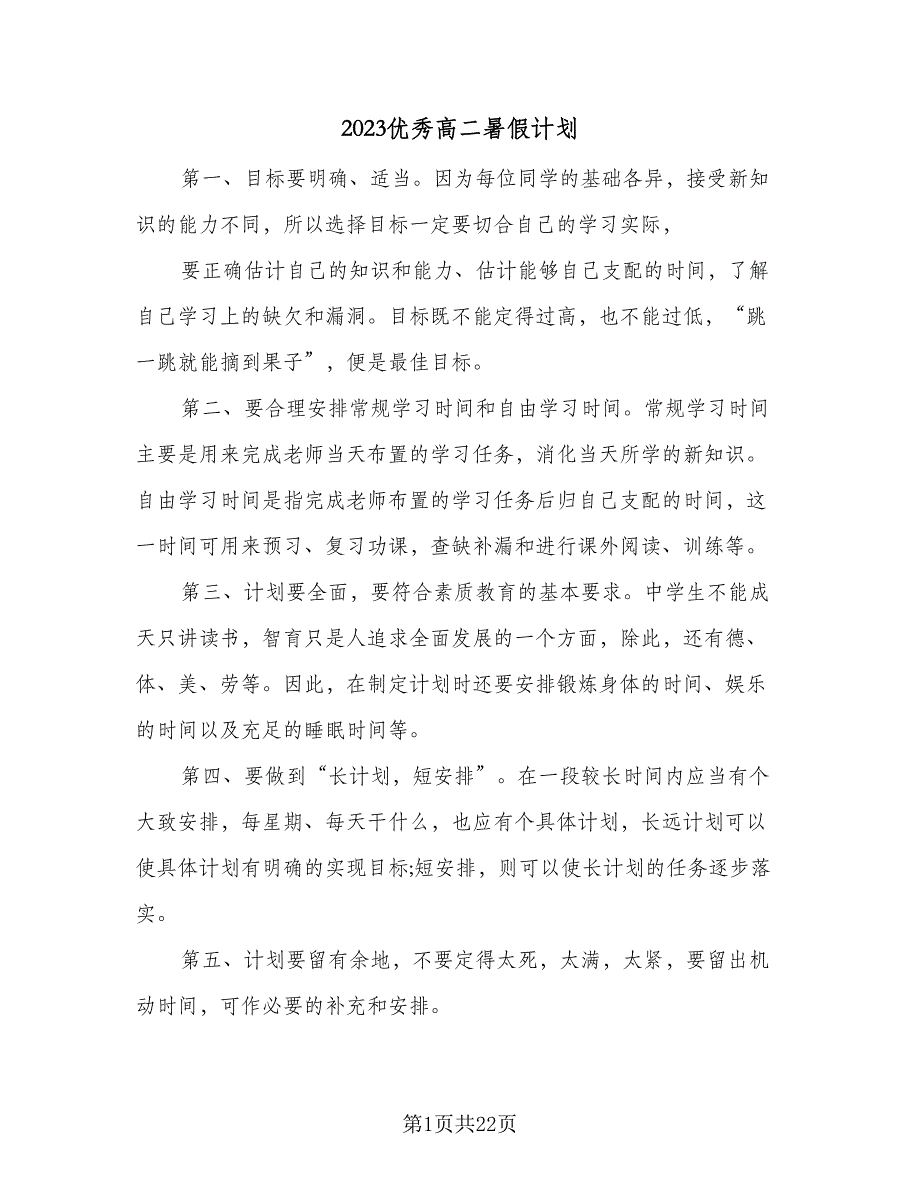 2023优秀高二暑假计划
第一、目标要明确、适当。因为每位同学的基础各异，接受新知
识的能力不同，所以选择目标一定要切合自己的学习实际，
要正确估计自己的知识和能力、估计能够自己支配的时间，了解
自己学习上的缺欠和漏洞。目标既不能定得过高，也不能过低，“跳
一跳就能摘到果子”，便是最佳目标。
第二、要合理安排常规学习时间和自由学习时间。常规学习时间
主要是用来完成老师当天布置的学习任务，消化当天所学的新知识。
自由学习时间是指完成老师布置的学习任务后归自己支配的时间，这
一时间可用来预习、复习功课，查缺补漏和进行课外阅读、训练等。
第三、计划要全面，要符合素质教育的基本要求。中学生不能成
天只讲读书，智育只是人追求全面发展的一个方面，除此，还有德、
体、美、劳等。因此，在制定计划时还要安排锻炼身体的时间、娱乐
的时间以及充足的睡眠时间等。
第四、要做到“长计划，短安排”。在一段较长时间内应当有个
大致安排，每星期、每天干什么，也应有个具体计划，长远计划可以
使具体计划有明确的实现目标;短安排，则可以使长计划的任务逐步落
实。
第五、计划要留有余地，不要定得太死，太满，太紧，要留出机
动时间，可作必要的补充和安排。
第1页共22页